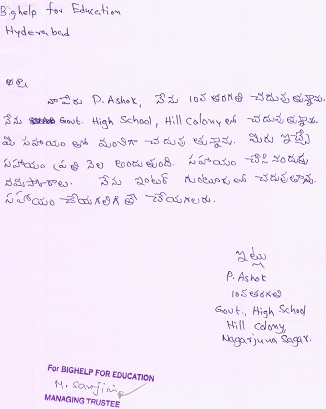 Bighelp for Education
Hyderabad
నా పేరు P. Ashok, నేను 10వ తరగతి చదువుతున్నాను.
నేను Govt. High School, Hill Colony లో చదువుతున్నాను.
మీ సహాయం తో మంచిగా చదువుతున్నాను. మీరు ఇచ్చే
సహాయం ప్రతి నెల అందుతుంది. సహాయం చేసినందుకు
నమస్కారాలు. నేను ఇంటర్ గుంటూరు లో చదువుతాను.
సహాయం చేయగలిగితే చేయగలరు.
ఇట్లు
P. Ashok
10వ తరగతి
Govt., High School
Hill Colony,
Nagarjuna Sagar.
For BIGHELP FOR EDUCATION
MANAGING TRUSTEE